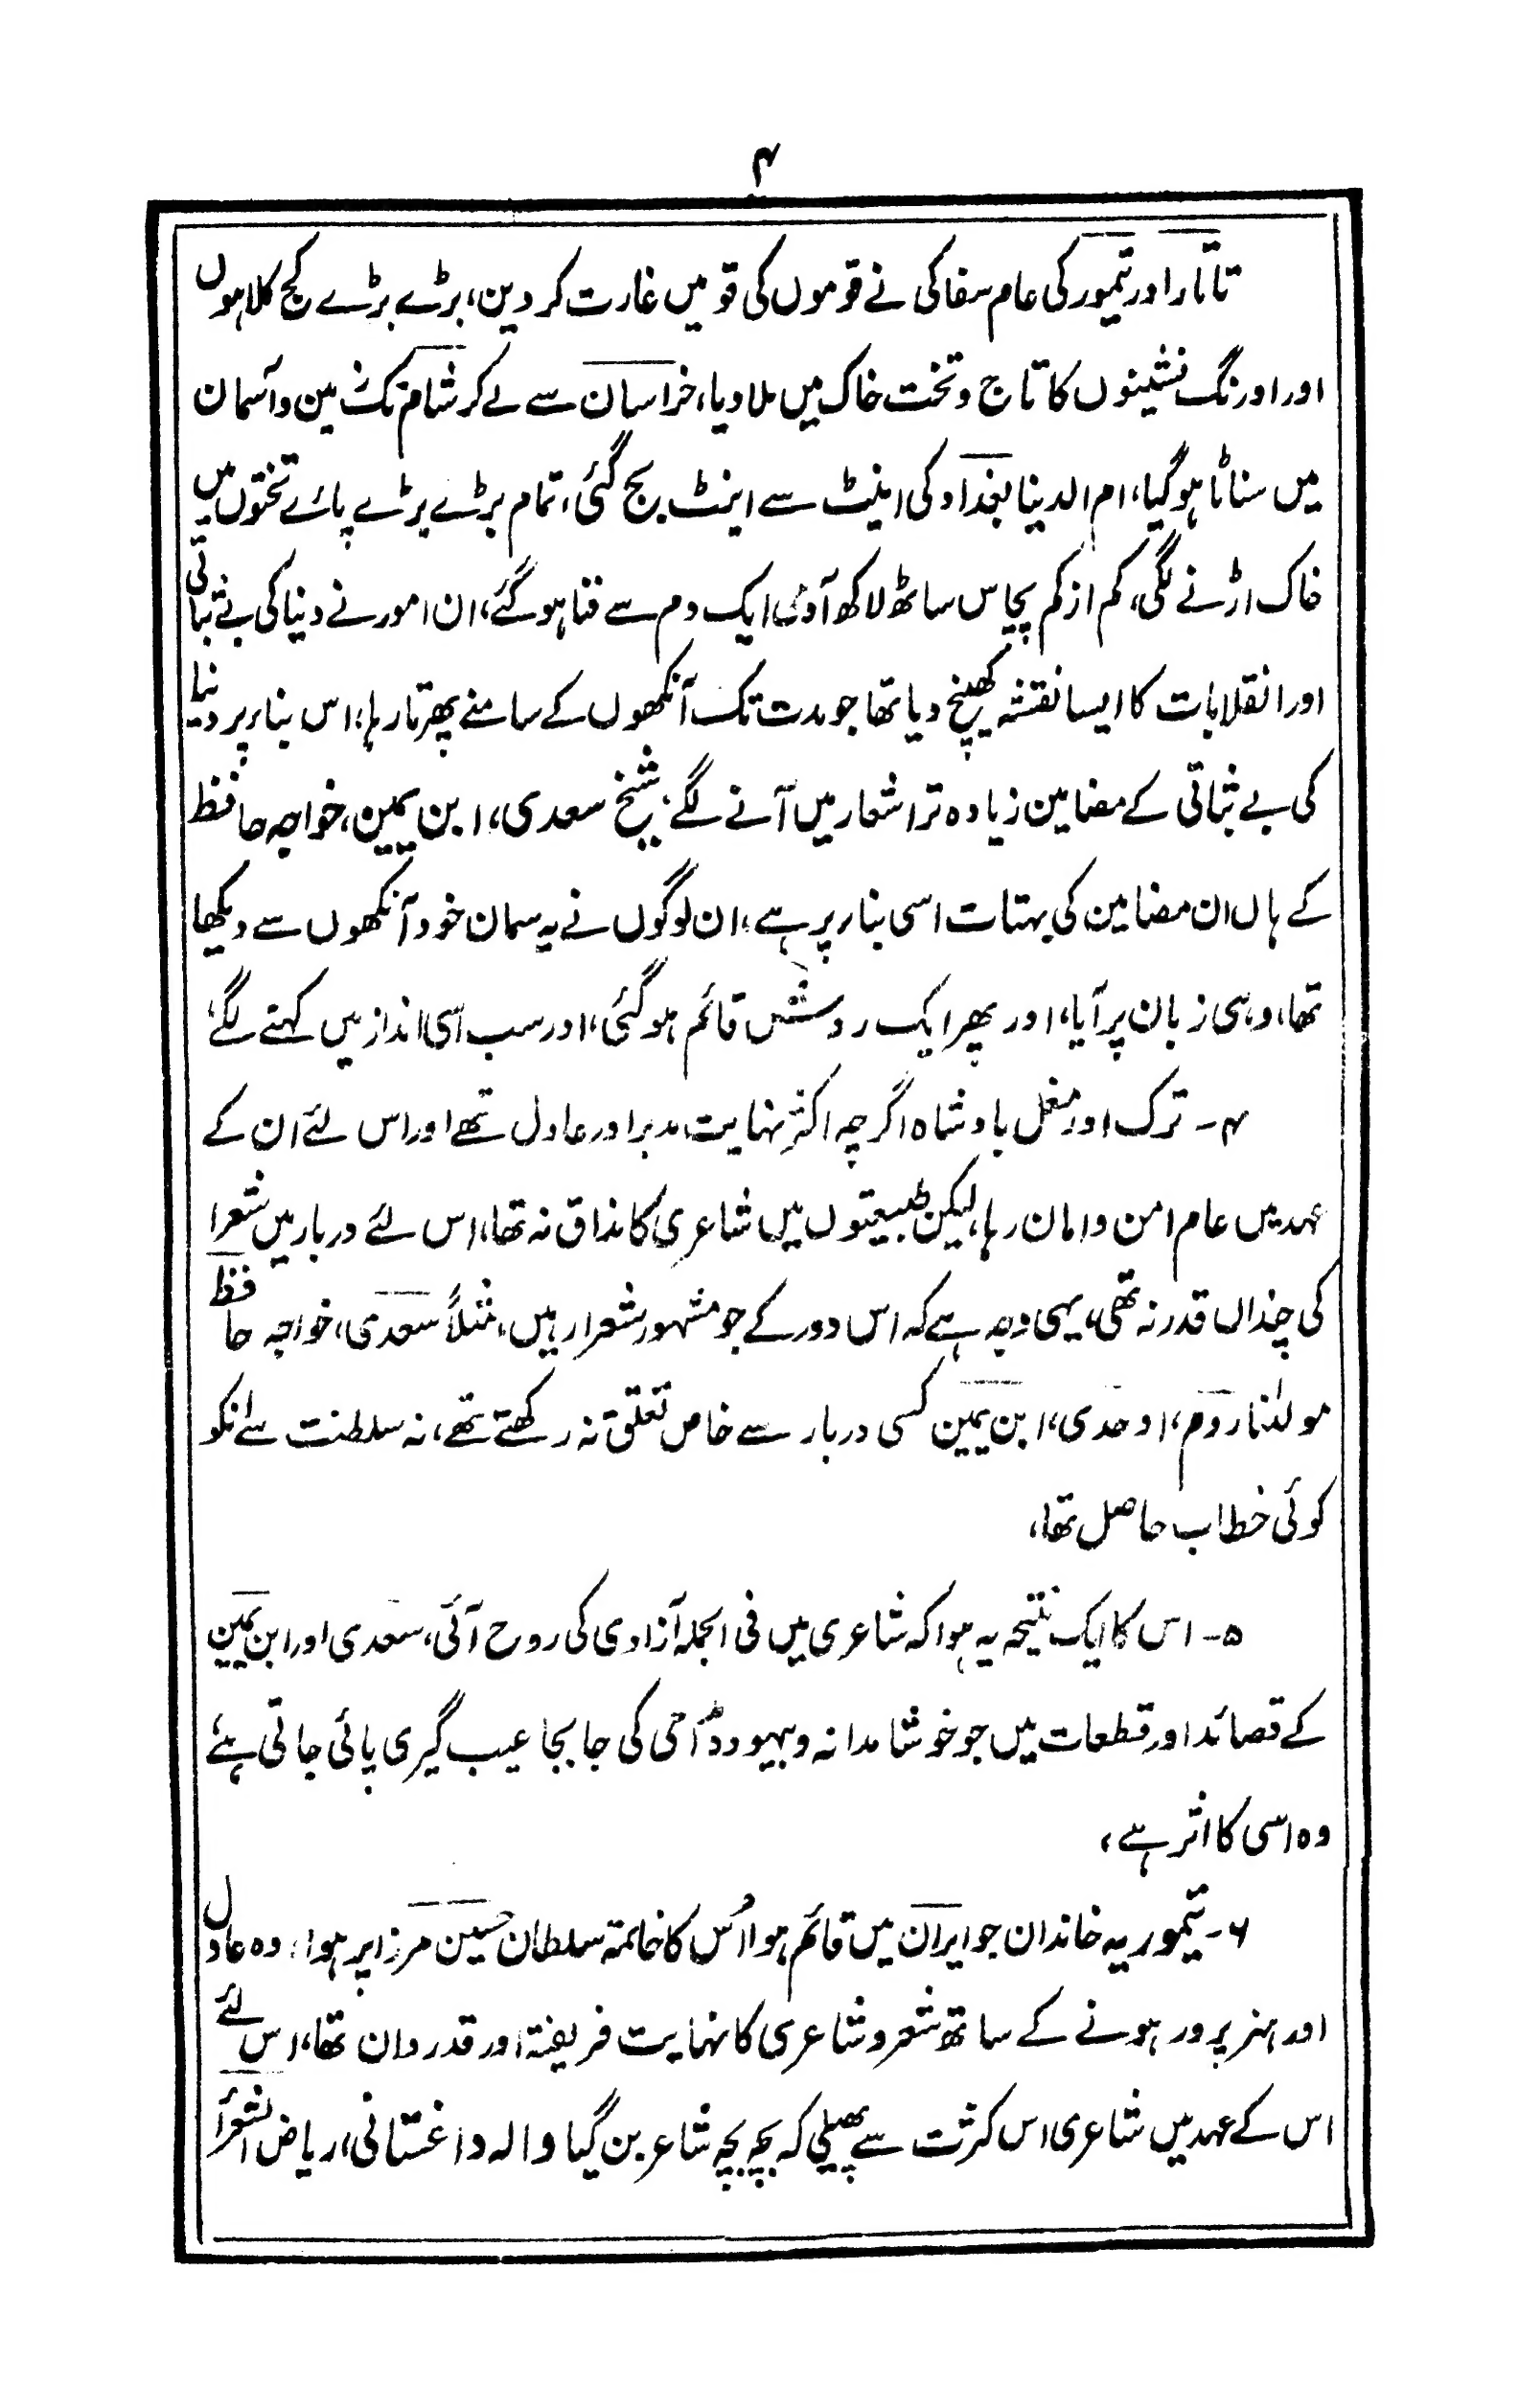 ۴
تاتار اور تیمور کی عام سفاکی نے قوموں کی قومیں غارت کر دین، بڑے بڑے کج کلاہوں
اور اورنگ نشینوں کا تاج و تخت خاک میں ملا دیا، خراسان سے لے کر شام تک زمین و آسمان
میں سناٹا ہو گیا، ام الدینا بغداد کی اینٹ سے اینٹ بج گئی، تمام بڑے بڑے پائے تختوں میں
خاک اڑنے لگی، کم از کم پچاس ساٹھ لاکھ آدمی ایک دم سے فنا ہو گئے، ان امور نے دنیا کی بے ثباتی
اور انقلابات کا ایسا نقشہ کھینچ دیا تھا جو مدت تک آنکھوں کے سامنے پھرتا رہا، اس بنا پر دنیا
کی بے ثباتی کے مضامین زیادہ تر اشعار میں آنے لگے، شیخ سعدی، ابن یمین، خواجہ حافظ
کے ہاں ان مضامین کی بہتات اسی بنا پر ہے، ان لوگوں نے یہ سمان خود آنکھوں سے دیکھا
تھا، وہی زبان پر آیا، اور پھر ایک روش قائم ہو گئی، اور سب اسی انداز میں کہتے لگے،
۴۔ ترک اور مغل بادشاہ اگرچہ اکثر نہایت مدبر اور عادل تھے اور اس لئے ان کے
عہد میں عام امن و امان رہا، لیکن طبیعتوں میں شاعری کا مذاق نہ تھا، اس لئے دربار میں شعرا
کی چنداں قدر نہ تھی، یہی وجہ ہے کہ اس دور کے جو مشہور شعرا ہیں، مثلاً سعدی، خواجہ حافظ
مولٰنا روم، اوحدی، ابن یمین کسی دربار سے خاص تعلق نہ رکھتے تھے، نہ سلطنت سے انکو
کوئی خطاب حاصل تھا،
۵۔ اس کا ایک نتیجہ یہ ہوا کہ شاعری میں فی الجملہ آزادی کی روح آئی، سعدی اور ابن یمین
کے قصائد اور قطعات میں جو خوشامدانہ و بیہودہ مداحی کی جا بجا عیب گیری پائی جاتی ہے
وہ اسی کا اثر ہے،
۶۔ تیموریہ خاندان جو ایران میں قائم ہوا اُس کا خاتمہ سلطان حسین مرزا پر ہوا، وہ عادل
اور ہنر پرور ہونے کے ساتھ شعر و شاعری کا نہایت فریفتہ اور قدردان تھا، اس لئے
اس کے عہد میں شاعری اس کثرت سے پھیلی کہ بچہ بچہ شاعر بن گیا والہ داغستانی، ریاض الشعرا